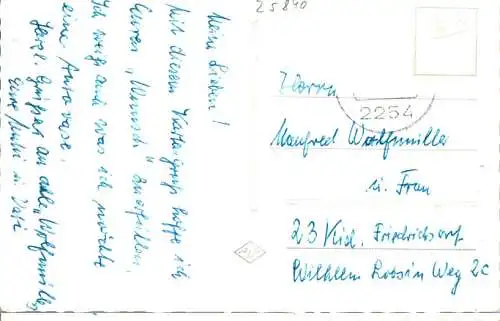 25840
Meine Lieben!
Mit diesem Kartengruß hoffe ich
Euren "Wunsch" zu erfüllen.
Ich weiß auch was ich möchte
eine Autovase.
Herzl. Grüße an alle "Wolfmüller"
Eure
2254
Herrn
Manfred Wolfmüller
u. Frau
23 Kiel, Friedrichsort
Wilhelm Weg 2c